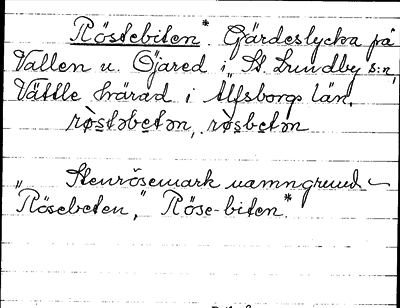 Röstebiten*. Gärdeslycka på
Vallen u. Öjared i St. Lundby s:n,
Vättle härad i Älfsborgs län.
rò̤stəbetən, rò̤sbetən
"Stenrösemark namngrund
Rösebeten," Röse-biten*.